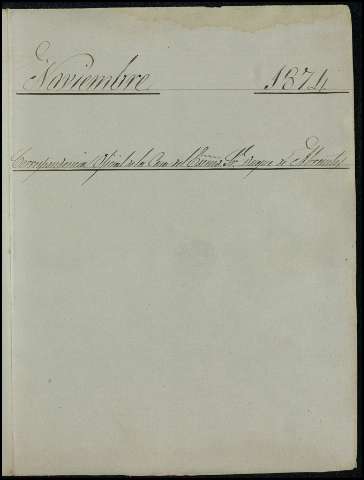 Noviembre 1874
Correspondencia Oficial de la Casa del Exmo. Sr. Duque de Abrantes